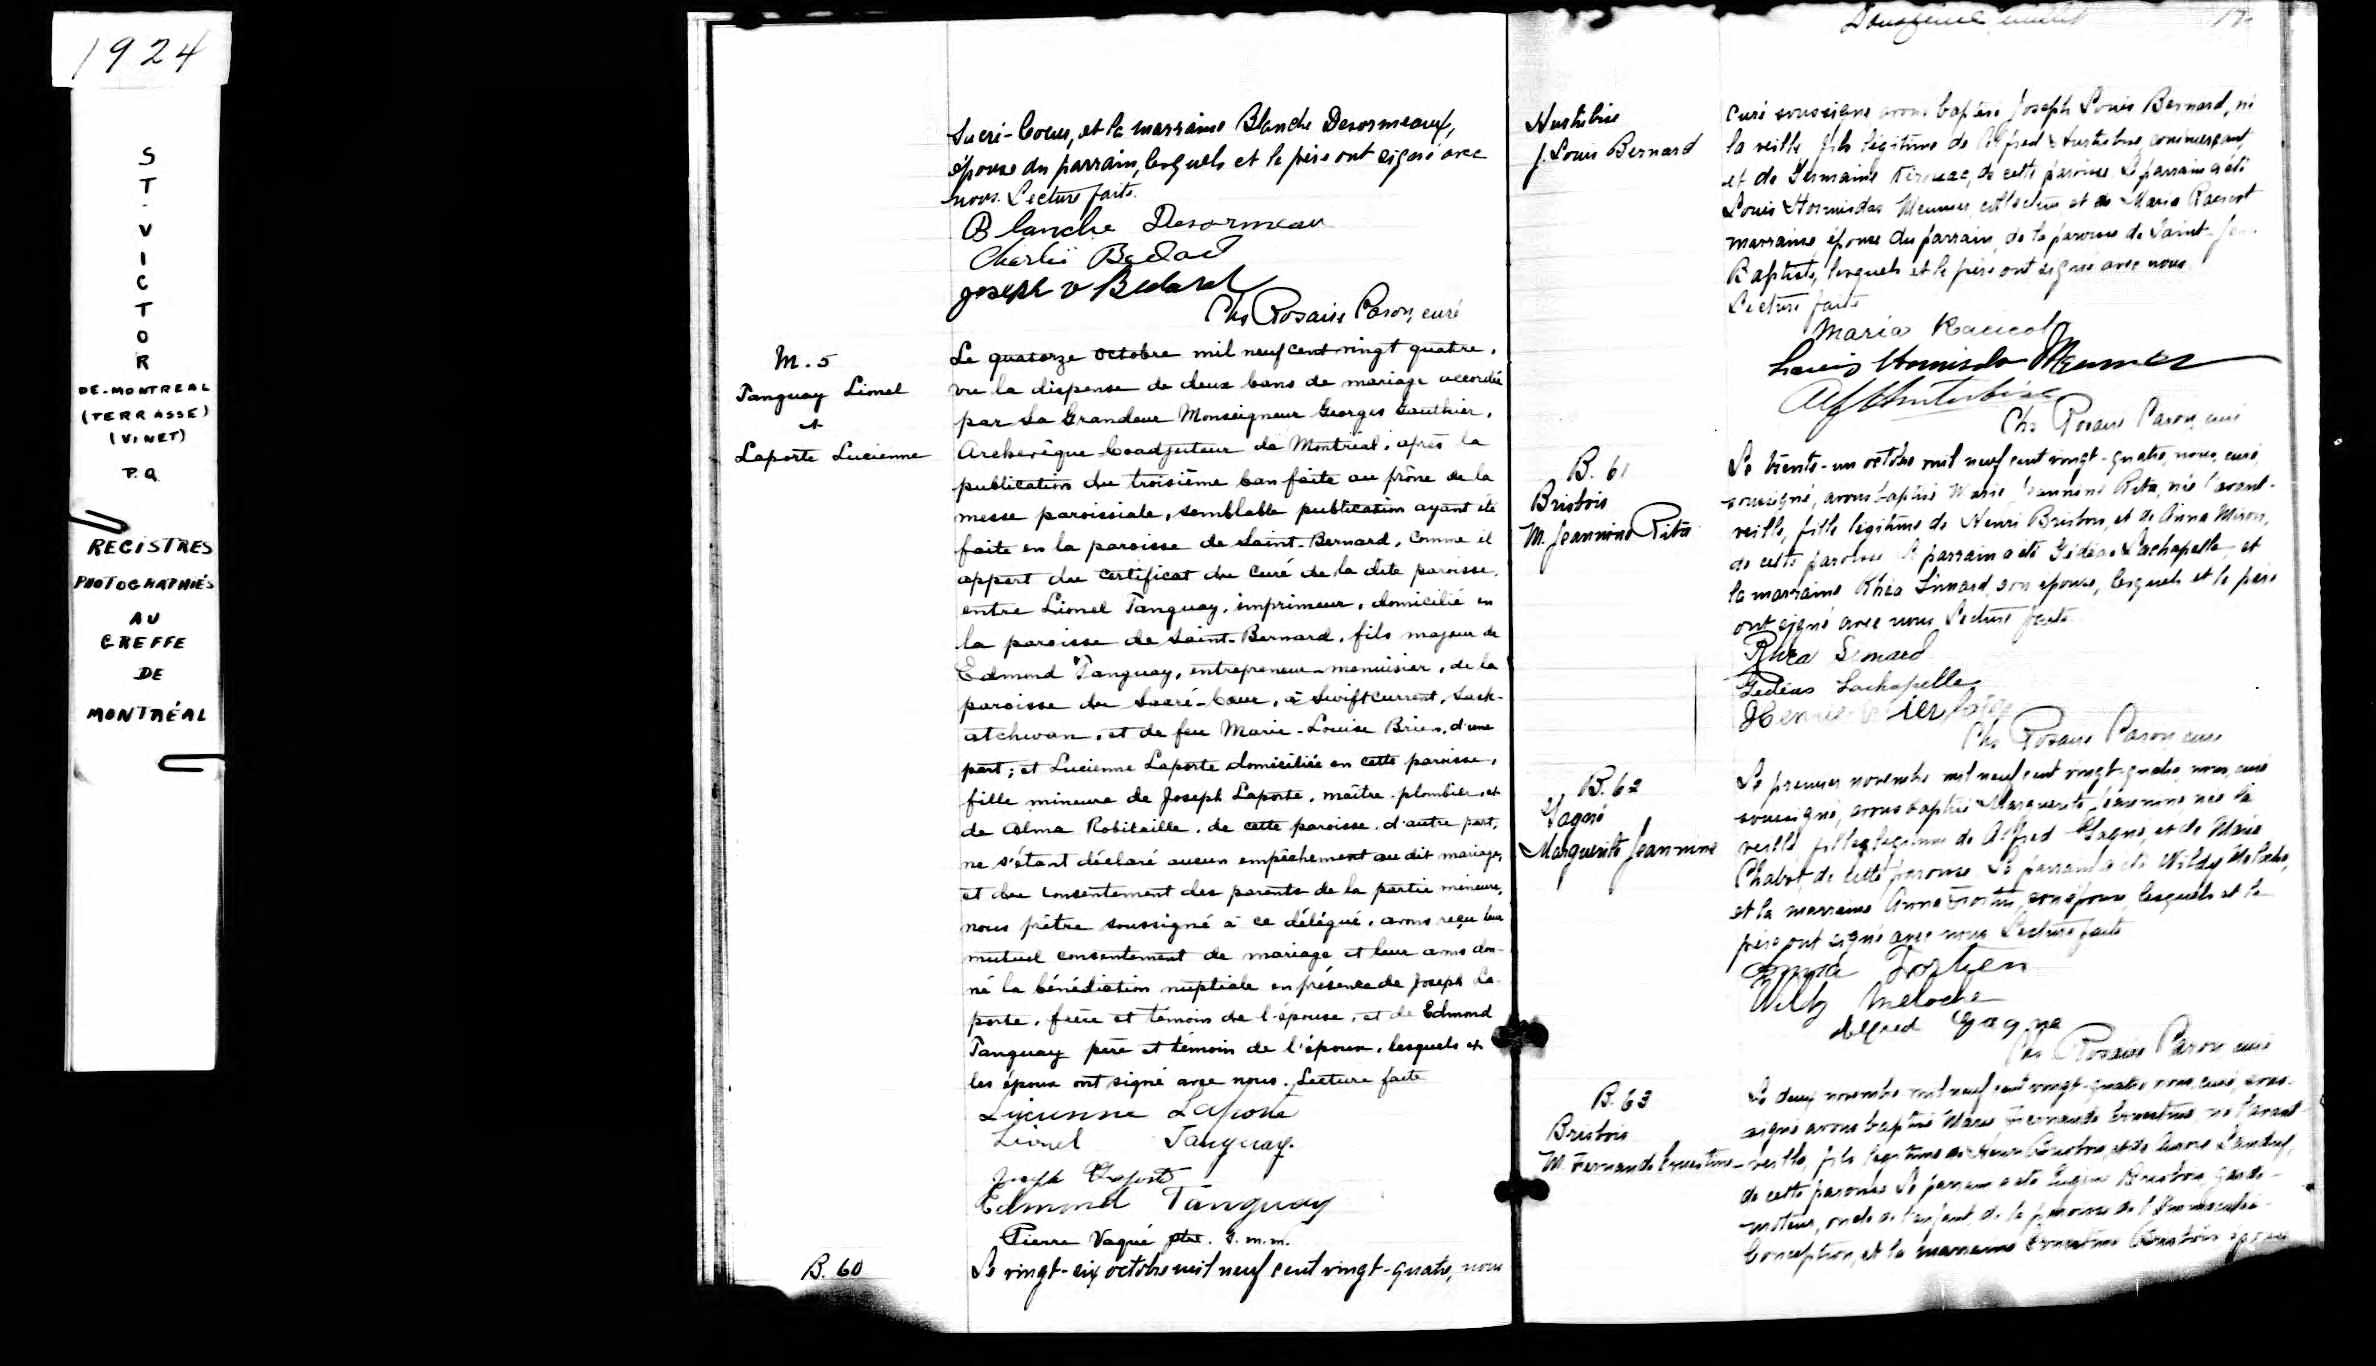 1924
S
T.
V
I
C
T
O
R
DE-MONTREAL
(TERRASSE)
(VINET)
P.Q.
REGISTRES
PHOTOGRAPHIÉS
AU
GREFFE
DE
MONTRÉAL
Sacré-Coeur, et la marraine Blanche Desormeaux,
épouse du parrain, lesquels et le père ont signé avec
nous. Lecture faite.
Blanche Desormeau
Charlie Bedad
Joseph v Bedard
Chs Rosaire Caron, curé
M. 5
Tanguay Lionel
et
Laporte Lucienne
Le quatorze octobre mil neuf cent vingt quatre,
vu la dispense de deux bans de mariage accordée
par Sa Grandeur Monseigneur Georges Gauthier,
Archevêque-Coadjuteur de Montréal, après la
publication du troisième ban faite au prône de la
messe paroissiale, semblable publication ayant été
faite en la paroisse de Saint-Bernard, comme il
appert du certificat du curé de la dite paroisse,
entre Lionel Tanguay, imprimeur, domicilié en
la paroisse de Saint-Bernard, fils majeur de
Edmond Tanguay, entrepreneur-menuisier, de la
paroisse du Sacré-Coeur, à Swiftcurrent, Sask-
atchwan, et de feu Marie-Louise Brien, d'une
part; et Lucienne Laporte domiciliée en cette paroisse,
fille mineure de Joseph Laporte, maître-plombier, et
de Alma Robitaille, de cette paroisse, d'autre part,
ne s'étant déclaré aucun empêchement au dit mariage,
et du consentement des parents de la partie mineure,
nous prêtre soussigné à ce délégué, avons reçu leur
mutuel consentement de mariage et leur avons don-
né la bénédiction nuptiale en présence de Joseph La-
porte, frère et témoin de l'épouse, et de Edmond
Tanguay père et témoin de l'époux, lesquels et
les époux ont signé avec nous. Lecture faite
Lucienne Laporte
Lionel Tanguay.
Joseph Laporte
Edmond Tanguay
Pierre Vaqué ptre. S. m. m.
B. 60
Le vingt-six octobre mil neuf cent vingt-quatre, nous
Douzième
Hurtubise
J. Louis Bernard
curé soussigné avons baptisé Joseph Louis Bernard, né
la veille fils légitime de Alfred Hurtubise commerçant,
et de Germaine Kirouac, de cette paroisse Le parrain a été
Louis Hormisdas Meunier, collecteur, et Maria Racicot
marraine épouse du parrain, de la paroisse de Saint-Jean
Baptiste, lesquels et le père ont signé avec nous.
Lecture faite
Maria Racicot
Louis Hormisdas Meunier
Alf Hurtubise
Chs Rosaire Caron, curé
B. 61
Brisbois
M. Jeannine Rita
Le trente-un octobre mil neuf cent vingt-quatre, nous, curé,
soussigné, avons baptisé Marie Jeannine Rita, née l'avant-
veille, fille légitime de Henri Brisbois, et de Anna Miron,
de cette paroisse Le parrain a été Gédéas Lachapelle, et
la marraine Rhéa Simard, son épouse, lesquels et le père
ont signé avec nous Lecture faite.
Rhéa Simard
Gedeas Lachapelle
Henri
Chs Rosaire Caron, curé
B. 62
Gagné
Marguerite Jeannine
Le premier novembre mil neuf cent vingt-quatre, nous, curé
soussigné, avons baptisé Marguerite Jeannine née la
veille, fille légitime de Alfred Gagné, et de Marie
Chabot, de cette paroisse. Le parrain a été Wildy Meloche,
et la marraine Anna Fortin, son épouse, lesquels et le
père ont signé avec nous Lecture faite
Anna Fortien
Wildy Meloche
Alfred Gagne
Chs Rosaire Caron, curé
B. 63
Brisbois
M. Fernande Ernestine
Le deux novembre mil neuf cent vingt-quatre nous, curé, sous-
signé avons baptisé Marie Fernande Ernestine, né l'avant-
veille, fils légitime de Henri Brisbois, et de
de cette paroisse Le parrain a été Eugène Brisbois, garde-
moteur, oncle de l'enfant, de la paroisse de l'Immaculée-
Conception, et la marraine Ernestine Brisbois épouse